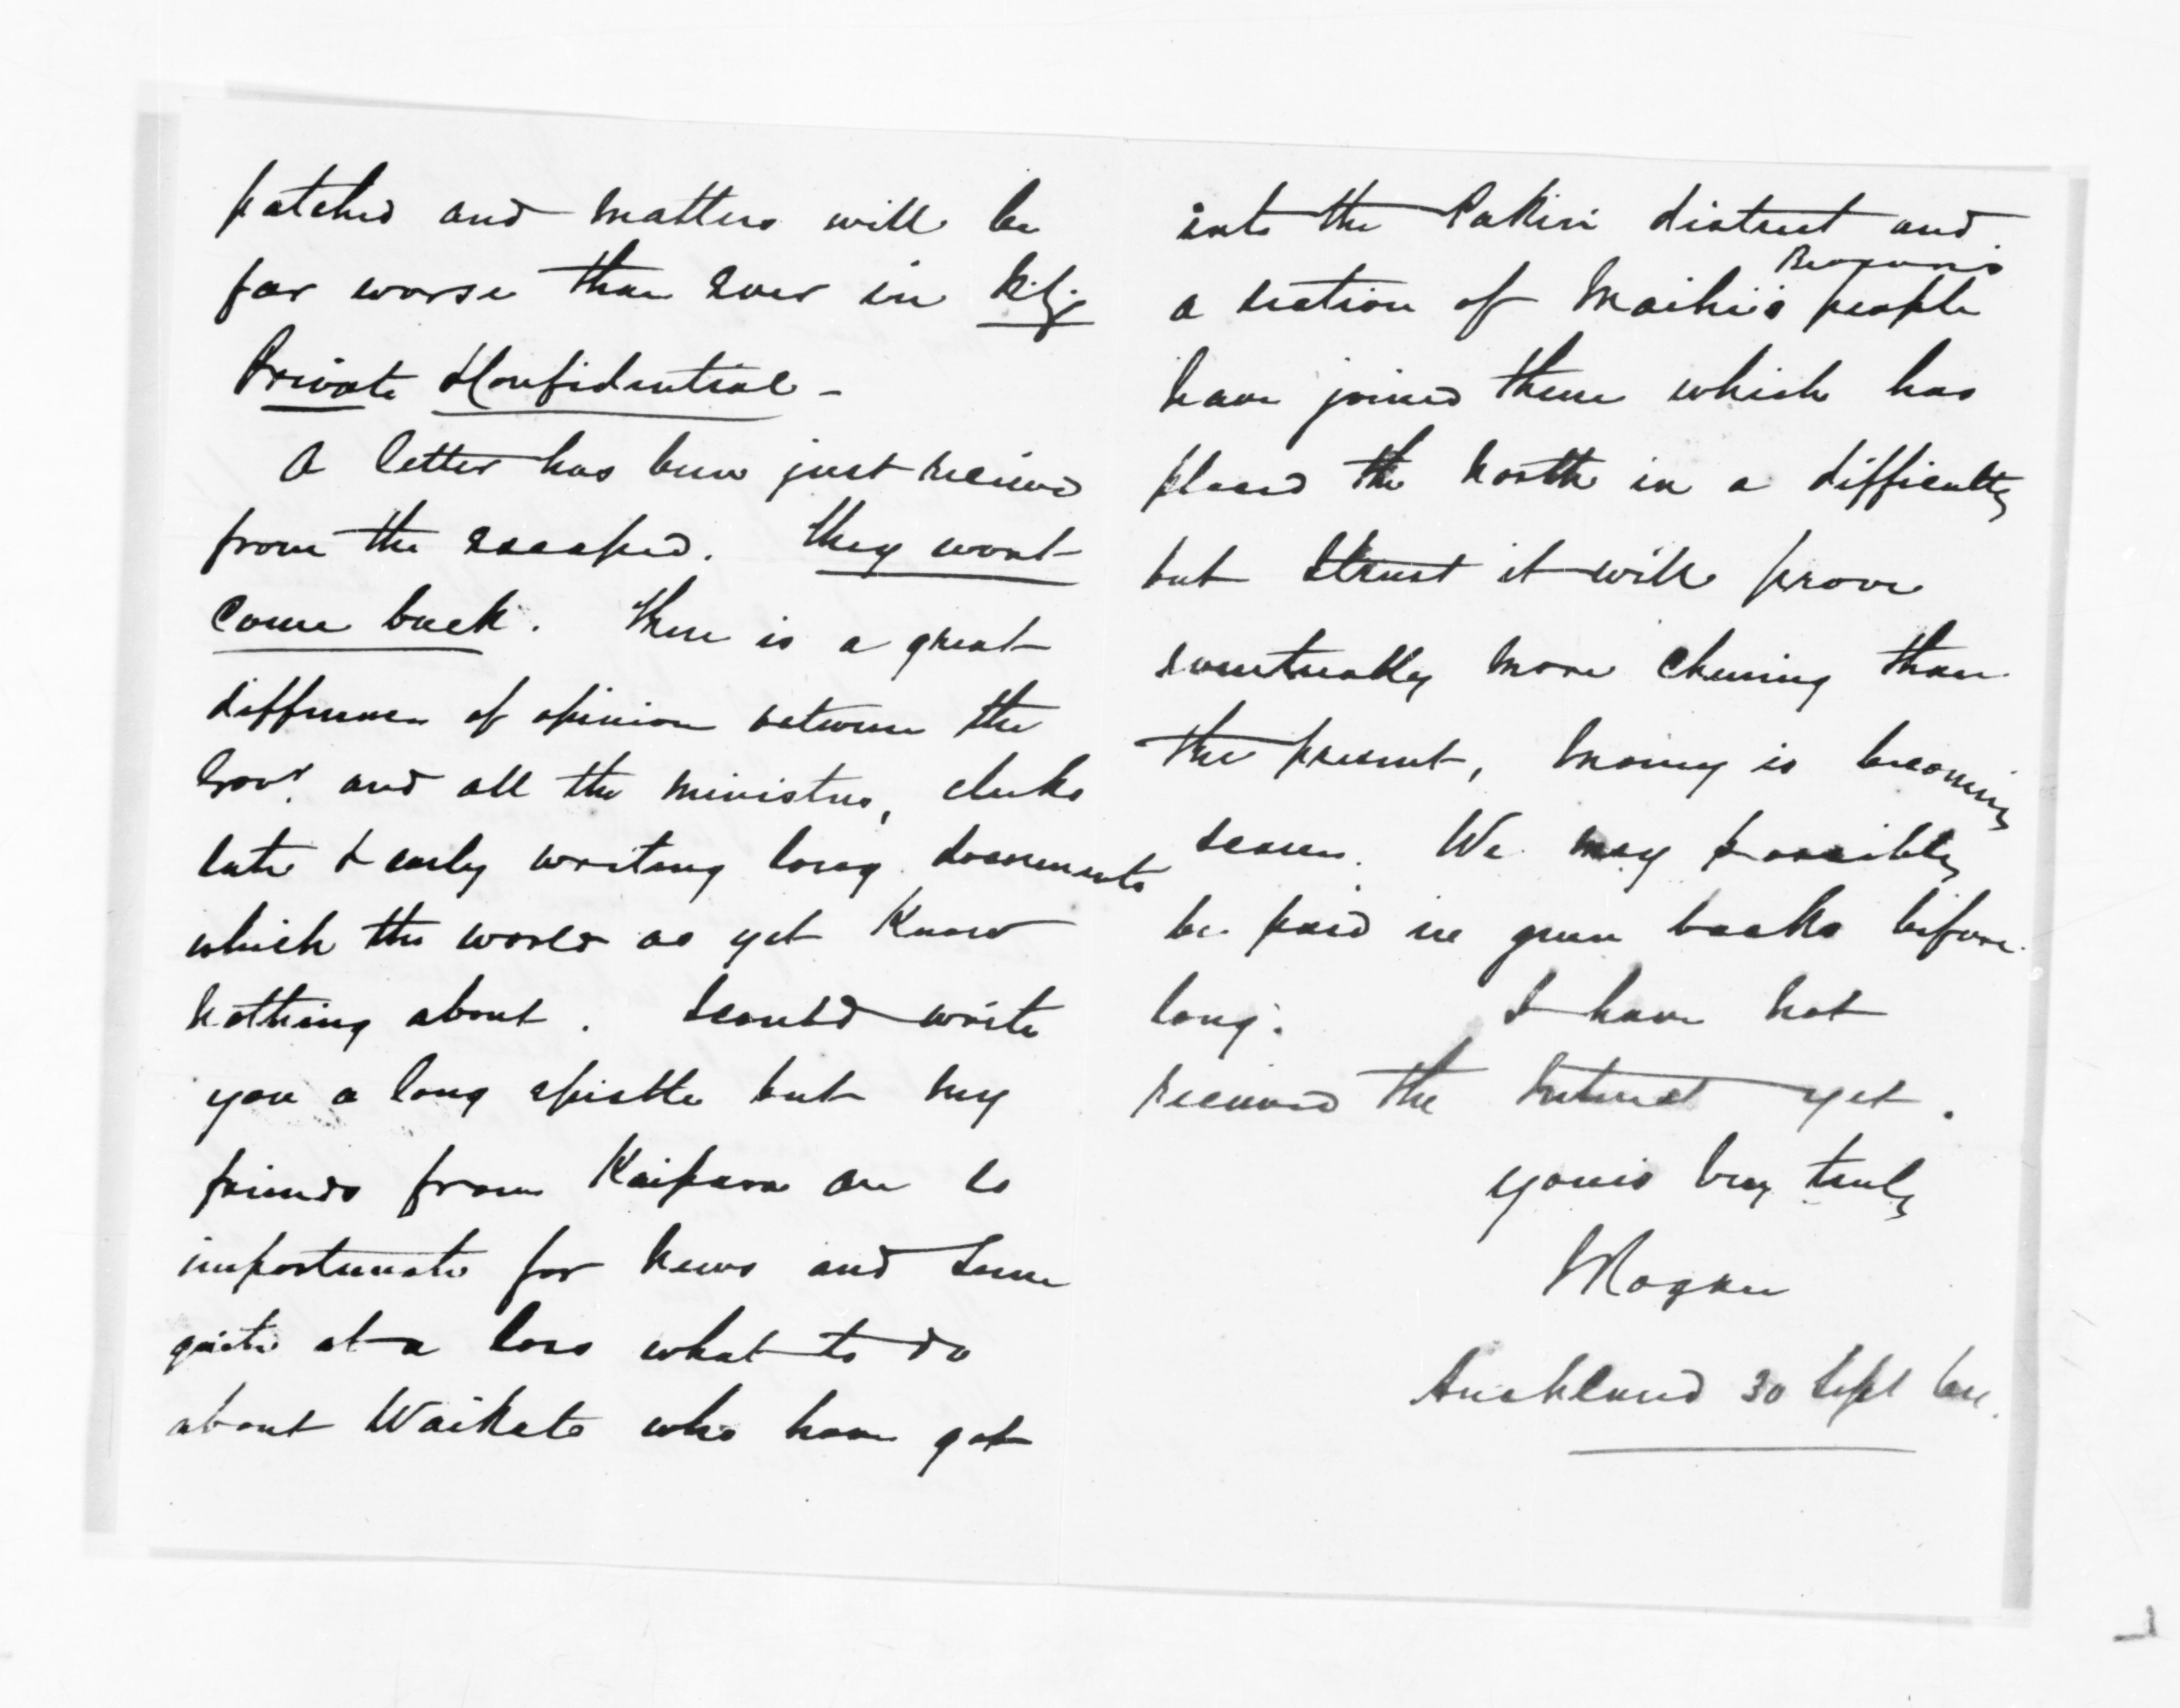 patched and matters will be
far worse than ever in
Private & Confidential -
A letter has been just received
from the escaped. they wont
come back. There is a great
difference of opinion between the
Govr. and all the ministers, clerks
late & early writing long documents
which the world as yet know
nothing about. I could write
you a long epistle but my
friends from Kaipara are so
importunate for news and seem
quite at a loss what to do
about Waikato who have got
into the Pakiri district and
a section of Maihi's people
have joined them which has
placed the north in a difficulty
but I trust it will prove
eventually more cheering than
the present, money is becoming
scarce. We may possibly
be paid in green backs before
long. I have not
received the yet.
yours very truly
Auckland 30 Sept